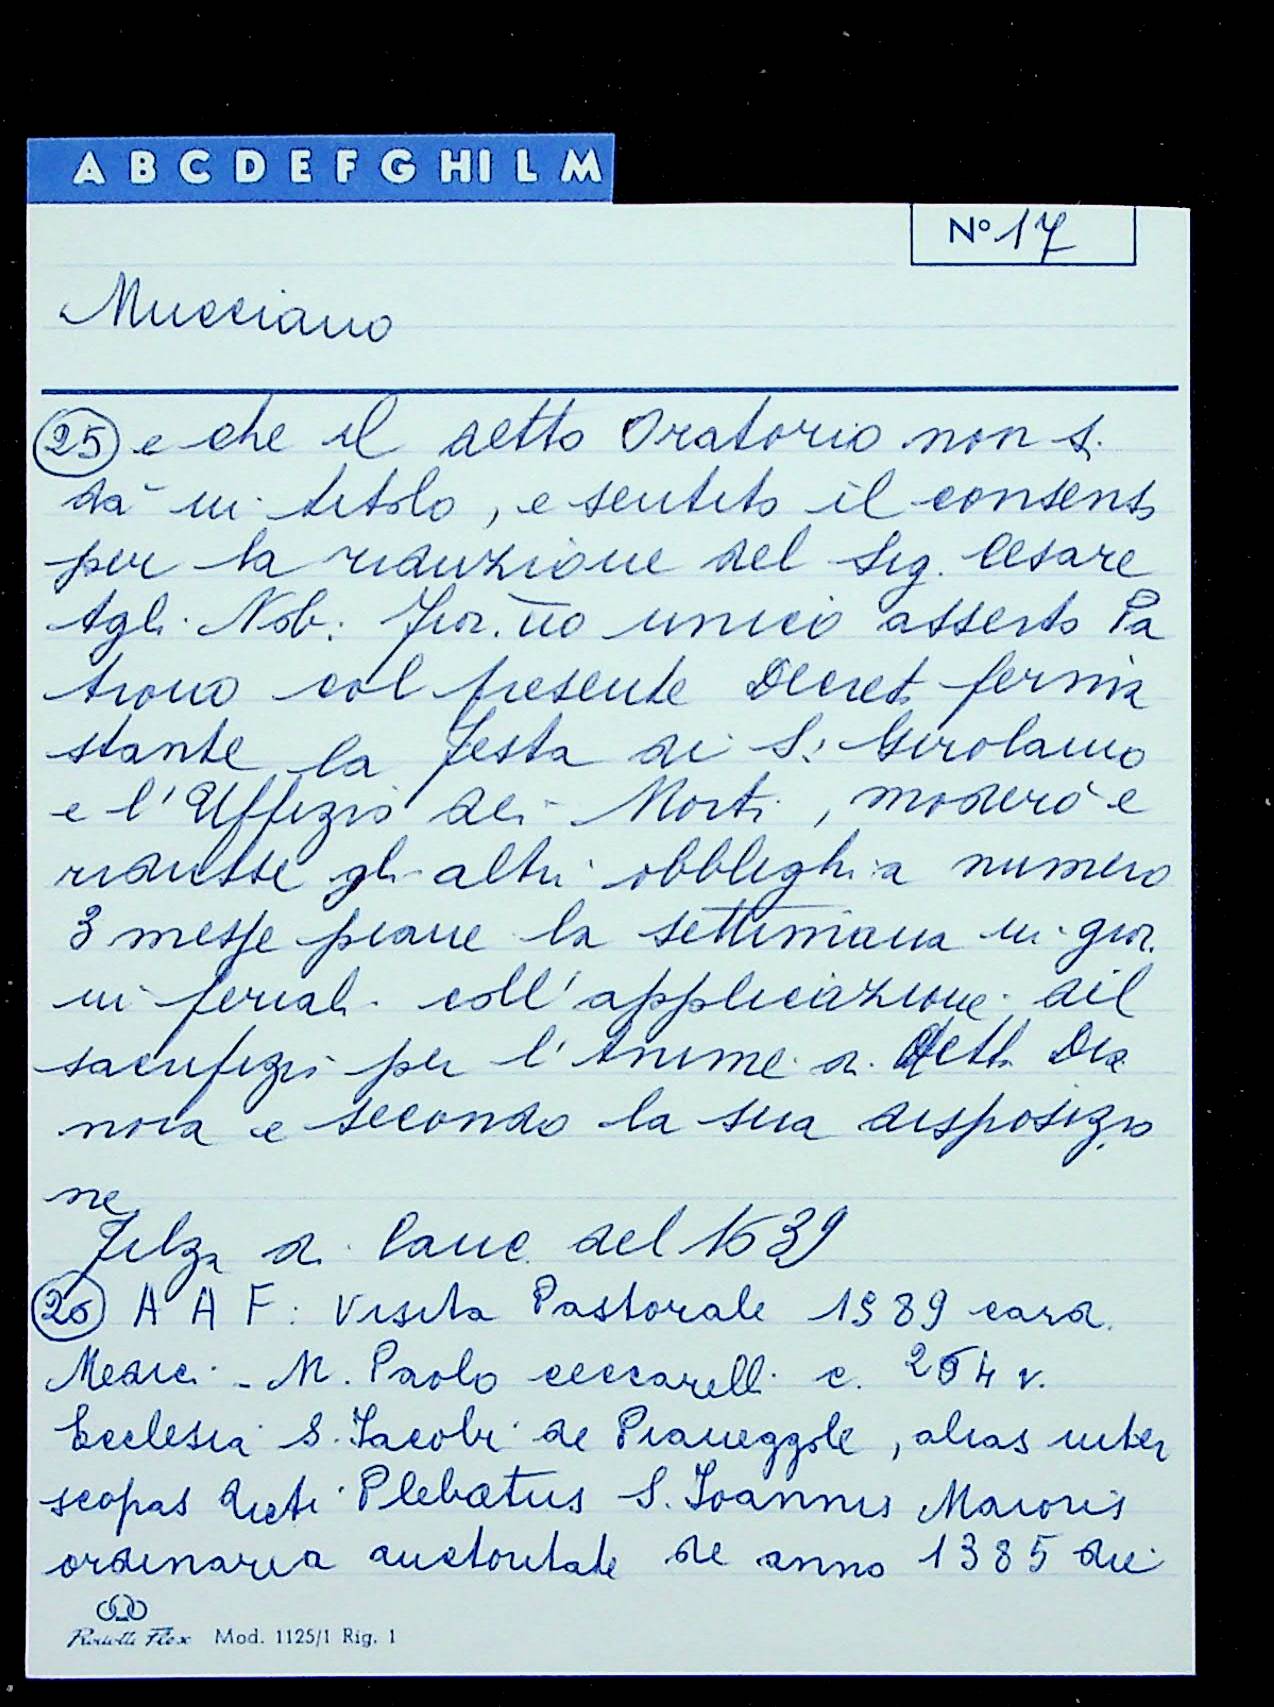 A B C D E F G HI L M
N° 17
Mucciano
25 e che il detto Oratorio non si
dà in titolo, e sentito il consenso
per la riduzione del Sig. Cesare
Agli Nob. Fior.no unico asserto Pa
trono col presente Decreto ferma
stante la Festa di S. Girolamo
e l'Uffizio dei Morti, moderò e
ridusse gli altri obblighi a numero
3 messe piane la settimana in gior
ni feriali coll'applicazione del
sacrifizio per l'Anime di detta Dia
nora e secondo la sua disposizio
ne
Filza di Canc. del 1639
26 A A F. Visita Pastorale 1589 card.
Medici - M. Paolo Ceccarelli c. 254 v.
Ecclesia S. Jacobi de Pianezzole, alias inter
scopas dicti Plebatus S. Joannis Maioris
ordinaria auctoritate de anno 1385 die
Mod. 1125/1 Rig. 1